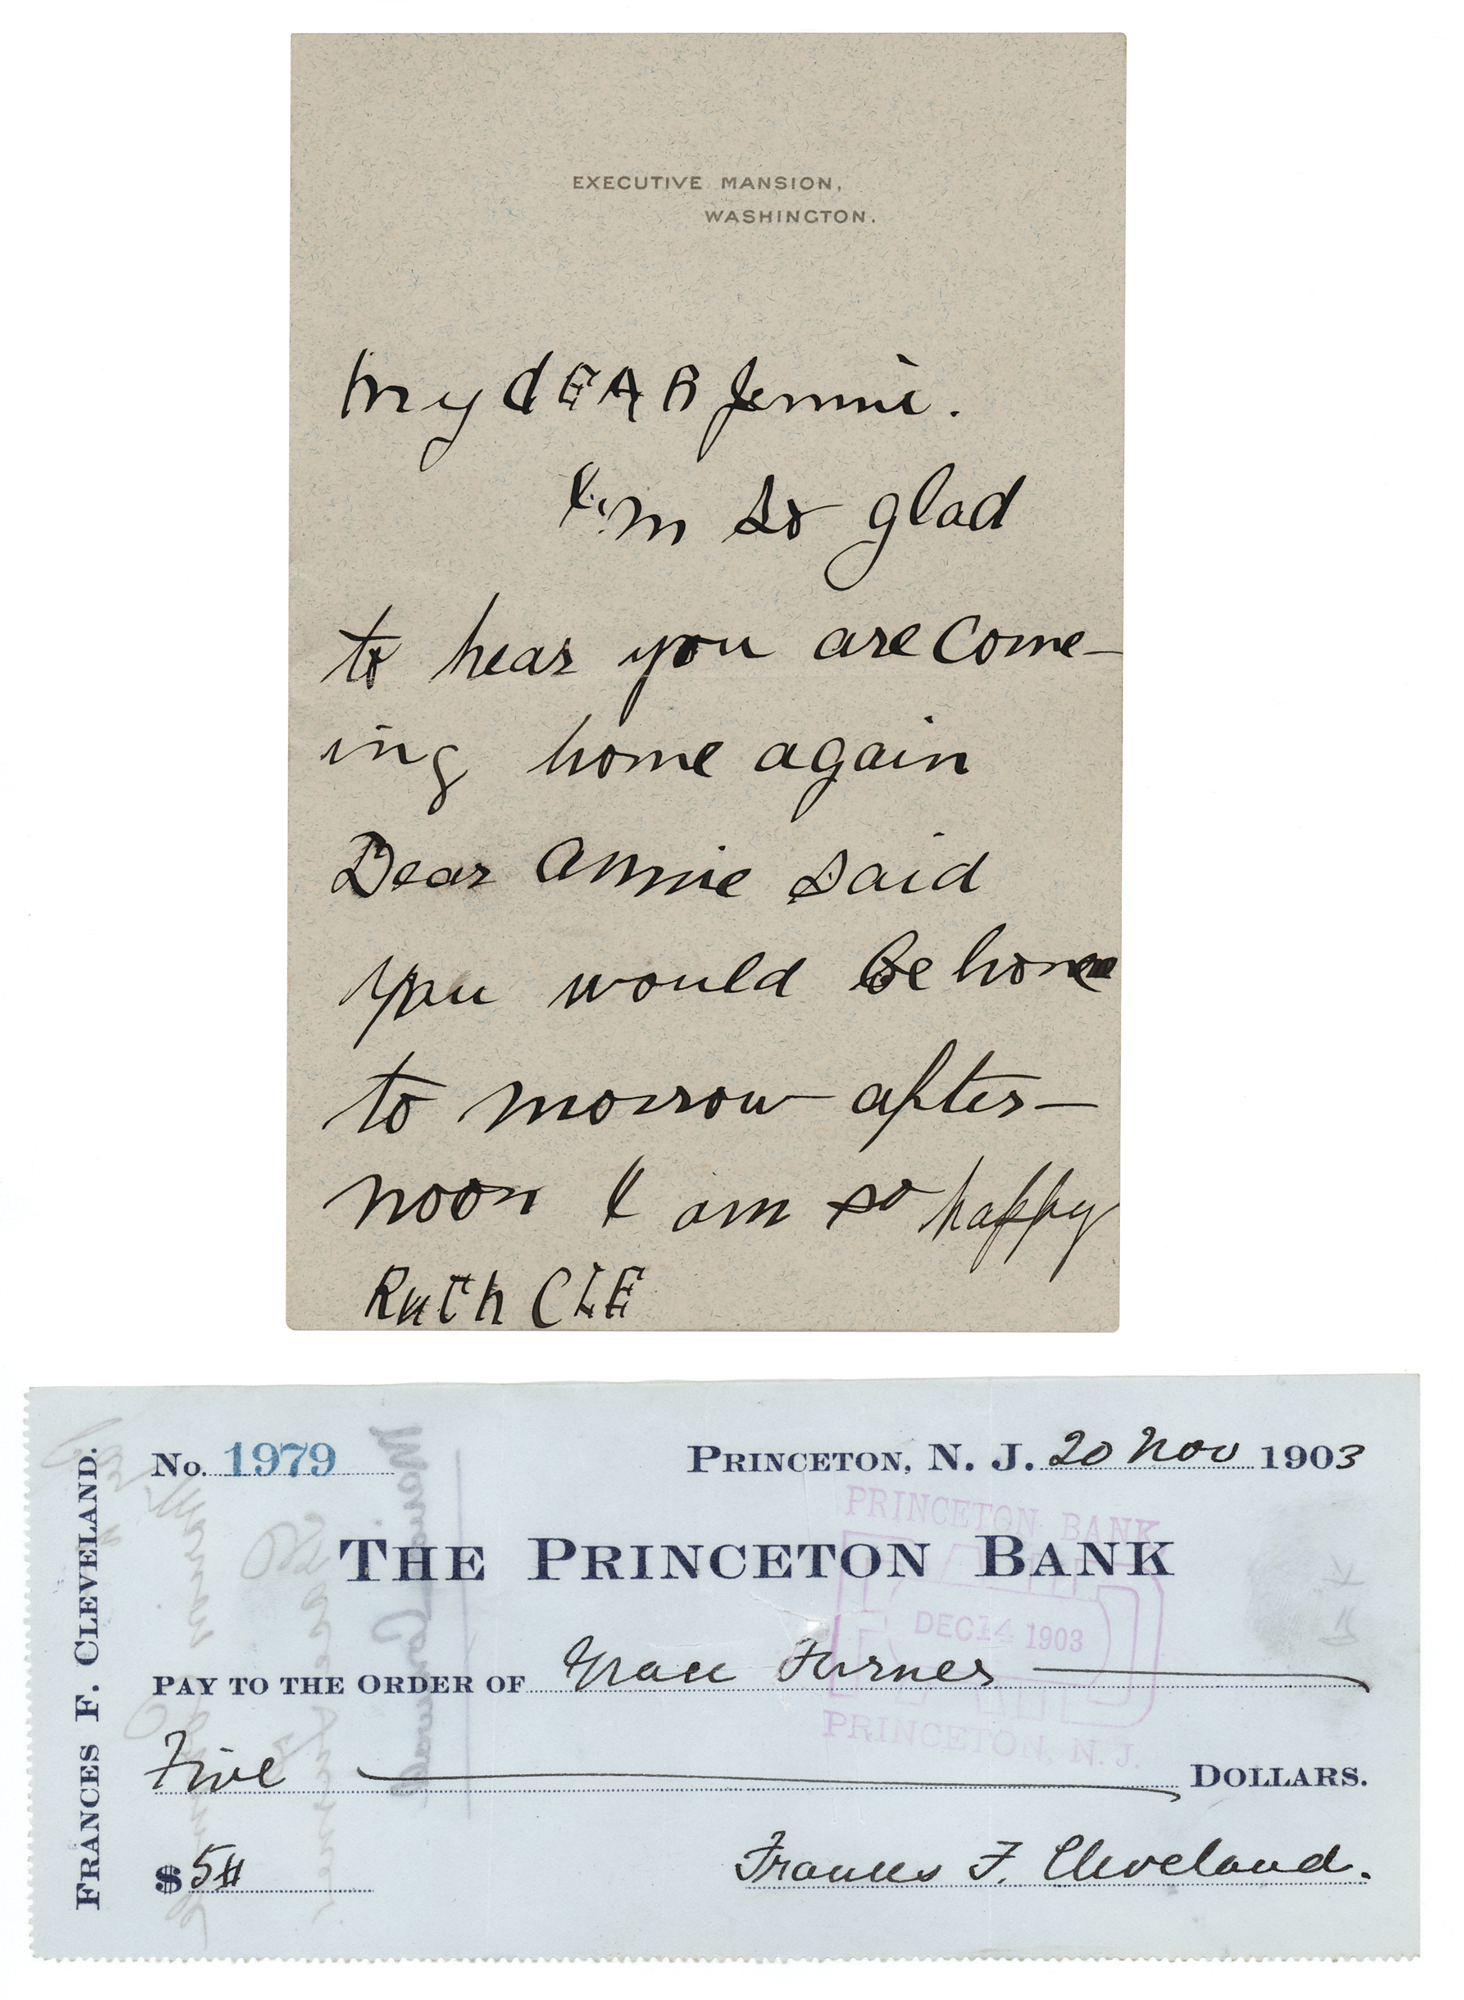 EXECUTIVE MANSION,
WASHINGTON.
My dEAR Jennie.
I'm so glad
to hear you are come-
ing home again
Dear Annie said
you would be home
to morrow after-
noon I am so happy
Ruth CLE
FRANCES F. CLEVELAND.
No. 1979
PRINCETON, N. J. 20 Nov 1903
THE PRINCETON BANK
PRINCETON BANK
PAID
DEC 14 1903
PRINCETON, N. J.
PAY TO THE ORDER OF Grace Turner
Five DOLLARS.
$5
Frances F. Cleveland.